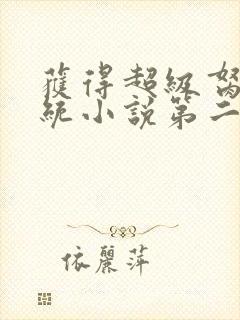 獲得超級
統小說第二
依麗萍